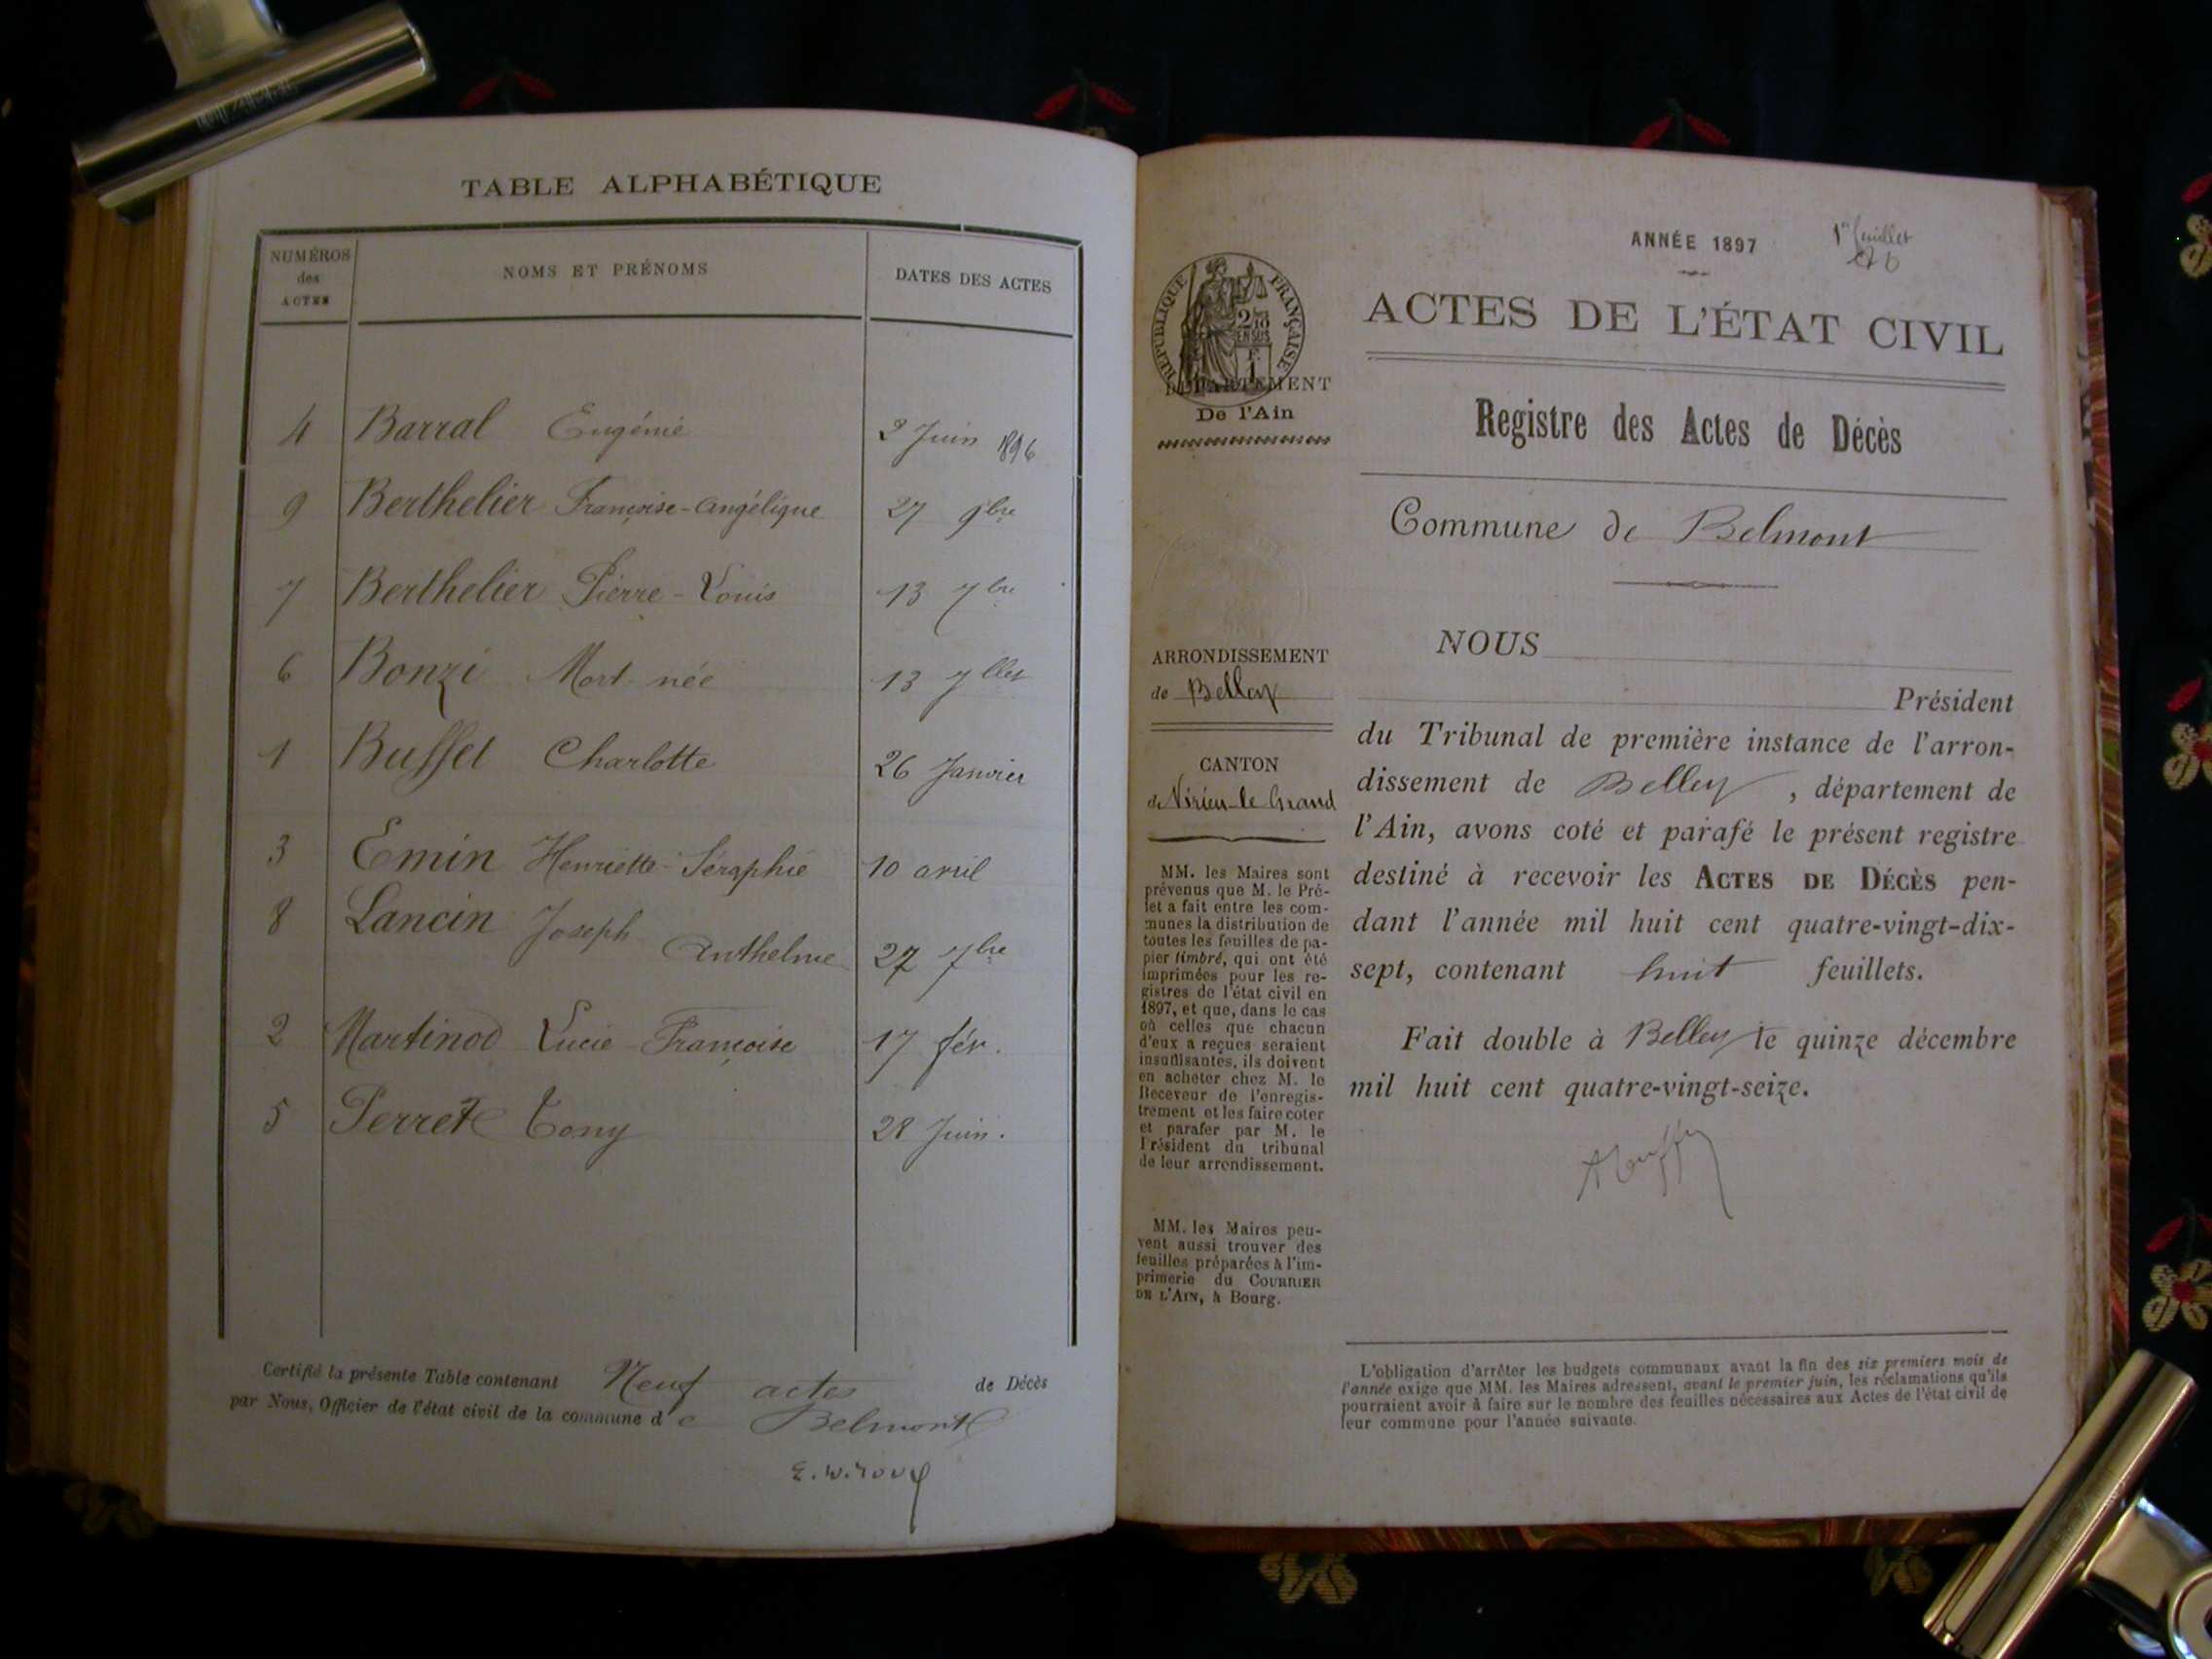 TABLE ALPHABÉTIQUE
NUMÉROS
des
ACTES
NOMS ET PRÉNOMS
DATES DES ACTES
4 Barral Eugénie 2 Juin 1896
9 Berthelier Françoise-Angélique 27 9bre
7 Berthelier Pierre-Louis 13 7bre
6 Bonzi Mort-née 13 Jllet
1 Buffet Charlotte 26 Janvier
3 Emin Henriette-Séraphie 10 avril
8 Lancin Joseph Anthelme 27 7bre
2 Martinod Lucie-Françoise 17 fév.
5 Perret Tony 28 Juin.
Certifié la présente Table contenant Neuf actes de Décès
par Nous, Officier de l'état civil de la commune de Belmont
ANNÉE 1897
1er feuillet
RÉPUBLIQUE FRANÇAISE
2/10
EN SUS
1 F.
DÉPARTEMENT
De l'Ain
ARRONDISSEMENT
de Belley
CANTON
de Virieu-le-Grand
MM. les Maires sont
prévenus que M. le Pré-
fet a fait entre les com-
munes la distribution de
toutes les feuilles de pa-
pier timbré, qui ont été
imprimées pour les re-
gistres de l'état civil en
1897, et que, dans le cas
où celles que chacun
d'eux a reçues seraient
insuffisantes, ils doivent
en acheter chez M. le
Receveur de l'enregis-
trement et les faire coter
et parafer par M. le
Président du tribunal
de leur arrondissement.
MM. les Maires peu-
vent aussi trouver des
feuilles préparées à l'im-
primerie du COURRIER
DE L'AIN, à Bourg.
ACTES DE L'ÉTAT CIVIL
Registre des Actes de Décès
Commune de Belmont
NOUS
Président
du Tribunal de première instance de l'arron-
dissement de Belley, département de
l'Ain, avons coté et parafé le présent registre
destiné à recevoir les ACTES DE DÉCÈS pen-
dant l'année mil huit cent quatre-vingt-dix-
sept, contenant huit feuillets.
Fait double à Belley le quinze décembre
mil huit cent quatre-vingt-seize.
L'obligation d'arrêter les budgets communaux avant la fin des six premiers mois de
l'année exige que MM. les Maires adressent, avant le premier juin, les réclamations qu'ils
pourraient avoir à faire sur le nombre des feuilles nécessaires aux Actes de l'état civil de
leur commune pour l'année suivante.